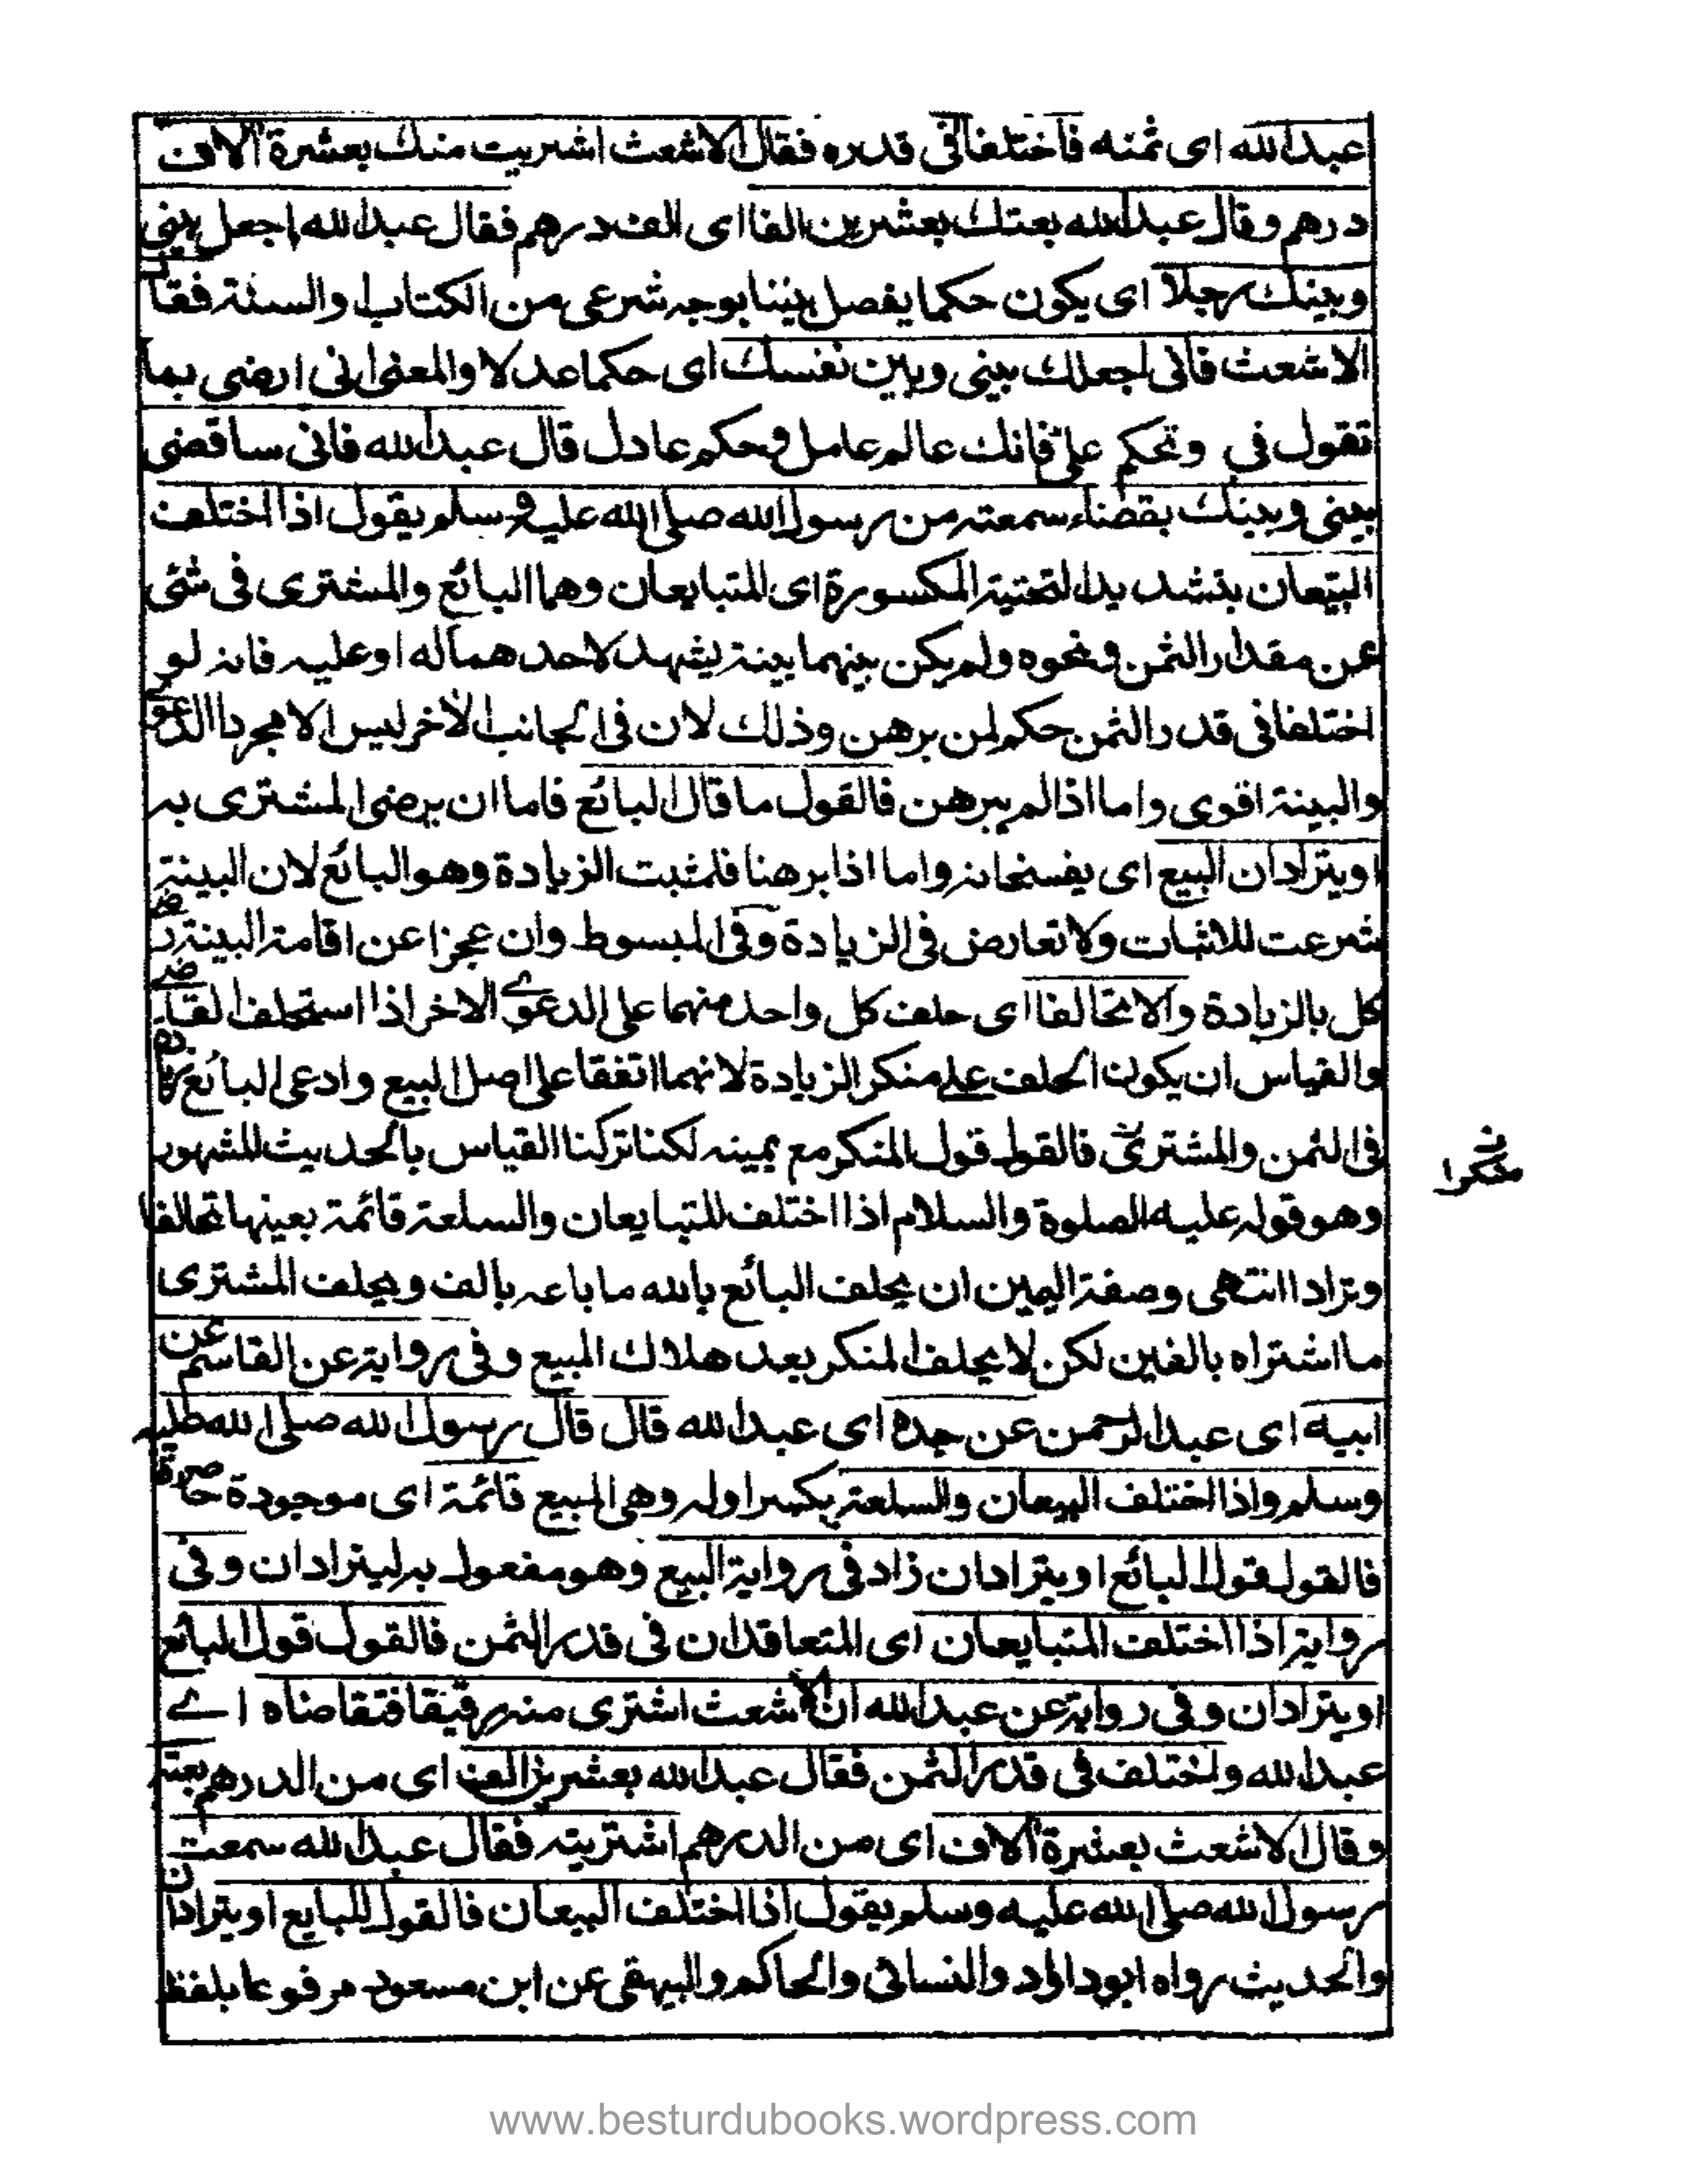 عبدالله اى ثمنه فاختلفا فى قدره فقال الاشعث اشتريت منك بعشرة آلاف
درهم وقال عبدالله بعتك بعشرين الفا اى الف درهم فقال عبدالله اجعل بينى
وبينك رجلا اى يكون حكما يفصل بيننا بوجه شرعى من الكتاب والسنة فقال
الاشعث فانى اجعلك بينى وبين نفسك اى حكما عدلا والمعنى انى ارضى بما
تقول فى وتحكم علىّ فانك عالم عامل وحكم عادل قال عبدالله فانى ساقضى
بينى وبينك بقضاء سمعته من رسول الله صلى الله عليه وسلم يقول اذا اختلف
البيّعان بتشديد التحتية المكسورة اى المتبايعان وهما البائع والمشترى فى شئى
عن مقدار الثمن ونحوه ولم يكن بينهما بينة يشهد لاحدهما له او عليه فانه لو
اختلفا فى قدر الثمن حكم لمن برهن وذلك لان فى الجانب الآخر ليس الا مجرد الدعوى
والبينة اقوى واما اذا لم يبرهن فالقول ما قال البائع فاما ان يرضى المشترى به
او يترادان البيع اى يفسخانه واما اذا برهنا فلمثبت الزيادة وهو البائع لان البينة
شرعت للاثبات ولا تعارض فى الزيادة وفى المبسوط وان عجزا عن اقامة البينة رضى
كل بالزيادة والا تحالفا اى حلف كل واحد منهما على الدعوى الاخر اذا استحلف القاضى
والقياس ان يكون الحلف على منكر الزيادة لانهما اتفقا على اصل البيع وادعى البائع زيادة
فى الثمن والمشترى فالقول قول المنكر مع يمينه لكنا تركنا القياس بالحديث المشهور
منكرا
وهو قوله عليه الصلوة والسلام اذا اختلف المتبايعان والسلعة قائمة بعينها تحالفا
وترادا انتهى وصفة اليمين ان يحلف البائع بالله ما باعه بالف ويحلف المشترى
ما اشتراه بالفين لكن لا يحلف المنكر بعد هلاك المبيع وفى رواية عن القاسم عن
ابيه اى عبدالرحمن عن جده اى عبدالله قال قال رسول الله صلى الله عليه
وسلم واذا اختلف البيعان والسلعة بكسر اوله وهى المبيع قائمة اى موجودة حاضرة
فالقول قول البائع او يترادان زاد فى رواية البيع وهو مفعول به ليترادان وفى
رواية اذا اختلف المتبايعان اى المتعاقدان فى قدر الثمن فالقول قول البائع
او يترادان وفى رواية عن عبدالله ان الاشعث اشترى منه رقيقا فتقاضاه اے
عبدالله واختلف فى قدر الثمن فقال عبدالله بعشرين الف اى من الدرهم بعته
وقال الاشعث بعشرة آلاف اى من الدرهم اشتريته فقال عبدالله سمعت
رسول الله صلى الله عليه وسلم يقول اذا اختلف البيعان فالقول للبايع او يترادان
والحديث رواه ابوداؤد والنسائى والحاكم والبيهقى عن ابن مسعود مرفوعا بلفظ
www.besturdubooks.wordpress.com